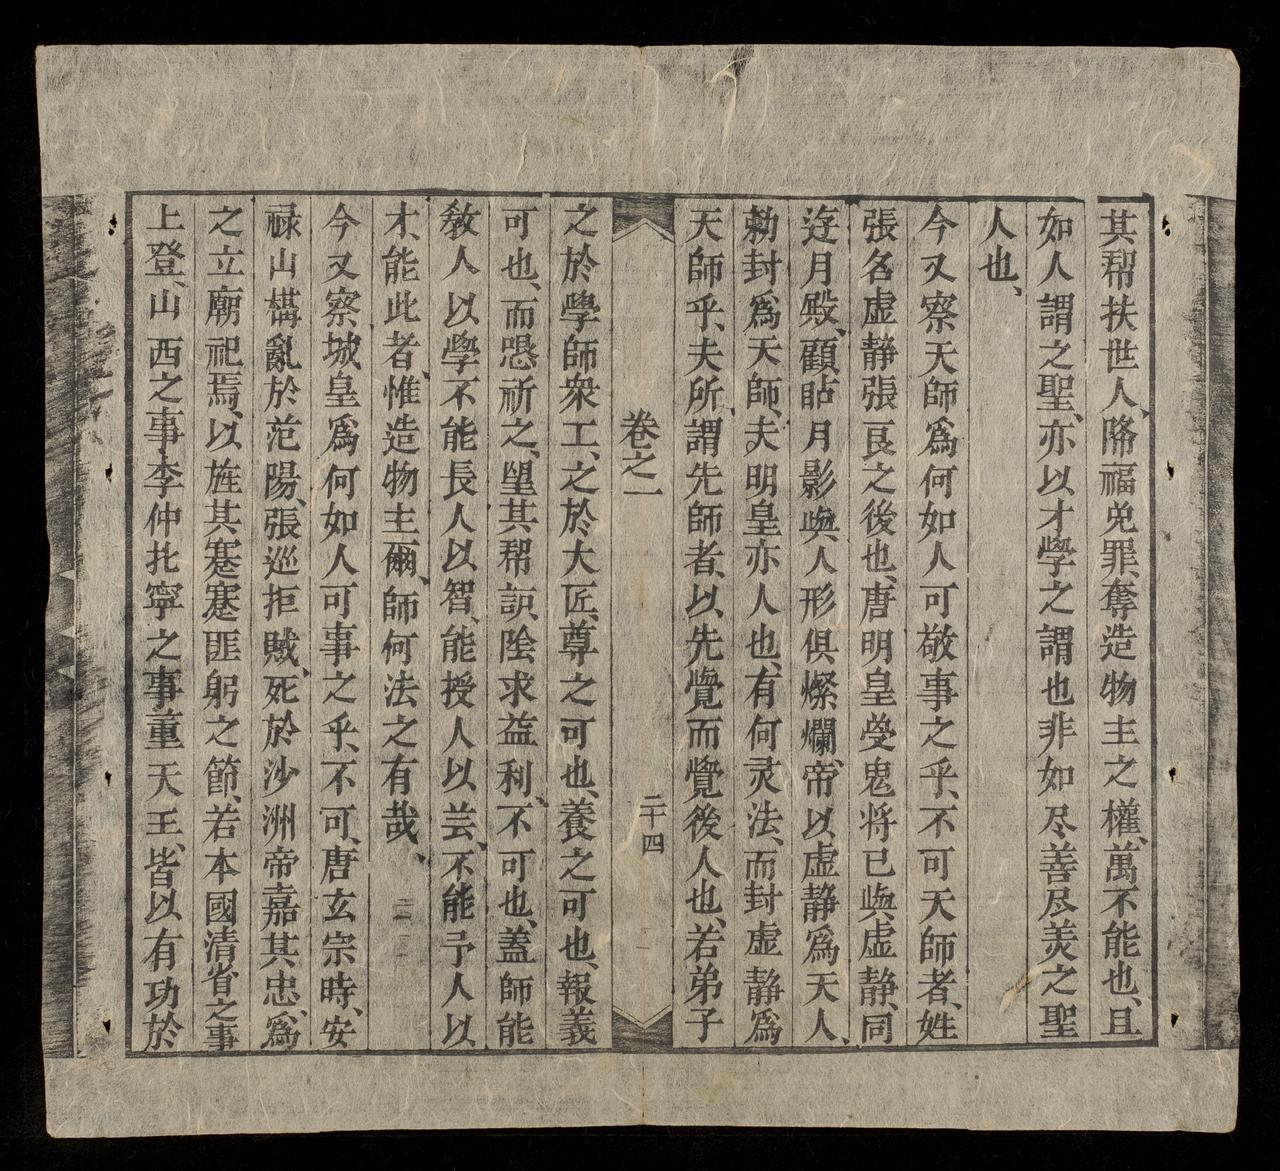 其帮扶世人、降福免罪、奪造物主之權、萬不能也、且
如人謂之聖、亦以才學之謂也非如尽善尽美之聖
人也、
今又察天師爲何如人可敬事之乎、不可天師者、姓
張名虛靜張良之後也、唐明皇受鬼将已與虛靜、同
遊月殿、顧貼月影與人形俱燦爛、帝以虛靜爲天人、
勅封爲天師、夫明皇亦人也、有何灵法、而封虛靜爲
天師乎、夫所、謂先師者、以先覺而覺後人也、若弟子
卷之一
二十四
之於學師衆工、之於大匠、尊之可也、養之可也、報義
可也、而恐祈之、望其帮訪、陰求益利、不可也、蓋師能
教人以學不能長人以智、能授人以芸、不能予人以
才、能此者、惟造物主爾、師何法之有哉、
今又察、城皇爲何如人可事之乎、不可、唐玄宗時、安
祿山構亂於范陽、張巡拒賊、死於沙洲帝嘉其忠、爲
之立廟祀焉、以旌其蹇蹇匪躬之節、若本國清省之事
上登、山西之事、李仲扎寧之事董天王、皆以有功於